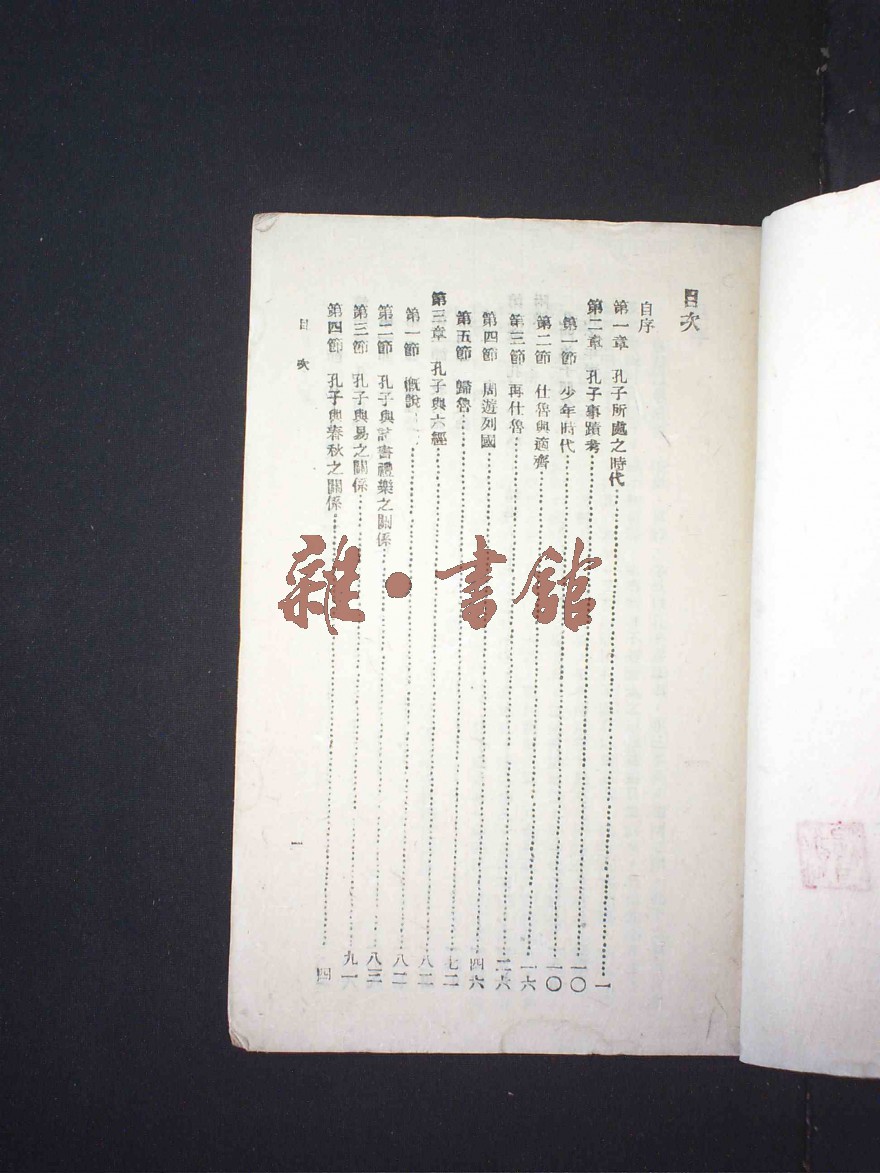 目次
自序
第一章 孔子所處之時代…………一
第二章 孔子事蹟考…………一〇
第一節 少年時代…………一〇
第二節 仕魯與適齊…………一六
第三節 再仕魯…………二六
第四節 周遊列國…………四六
第五節 歸魯…………七二
第三章 孔子與六經…………八二
第一節 概說…………八二
第二節 孔子與詩書禮樂之關係…………八三
第三節 孔子與易之關係…………九一
第四節 孔子與春秋之關係…………四
目次
一
雜·書館